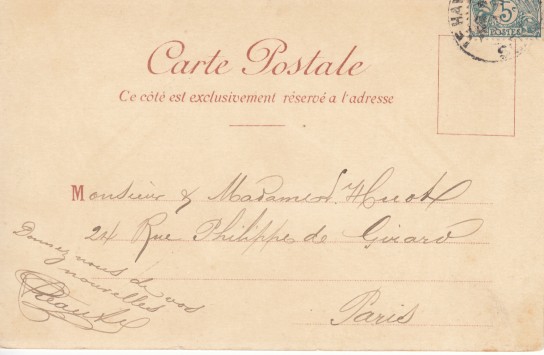 5c
POSTES
LE HA
Carte Postale
Ce côté est exclusivement réservé a l'adresse
Monsieur & Madame Huot
24 Rue Philippe de Girard
Paris
Donnez nous de vos
nouvelles